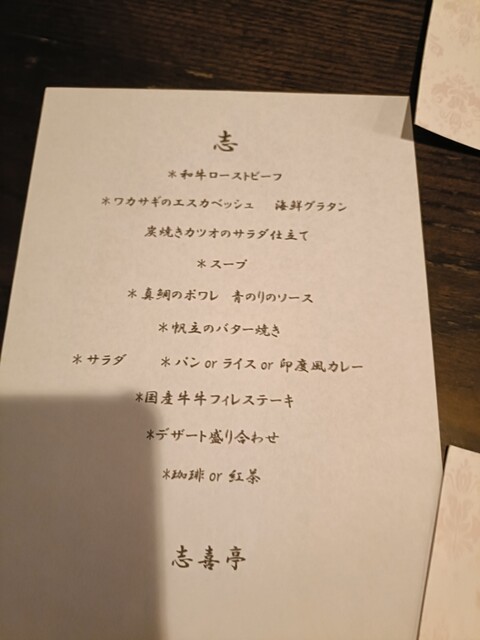 志
＊和牛ローストビーフ
＊ワカサギのエスカベッシュ　海鮮グラタン
炭焼きカツオのサラダ仕立て
＊スープ
＊真鯛のポワレ　青のりのソース
＊帆立のバター焼き
＊サラダ　＊パン or ライス or 印度風カレー
＊国産牛牛フィレステーキ
＊デザート盛り合わせ
＊珈琲 or 紅茶
志喜亭